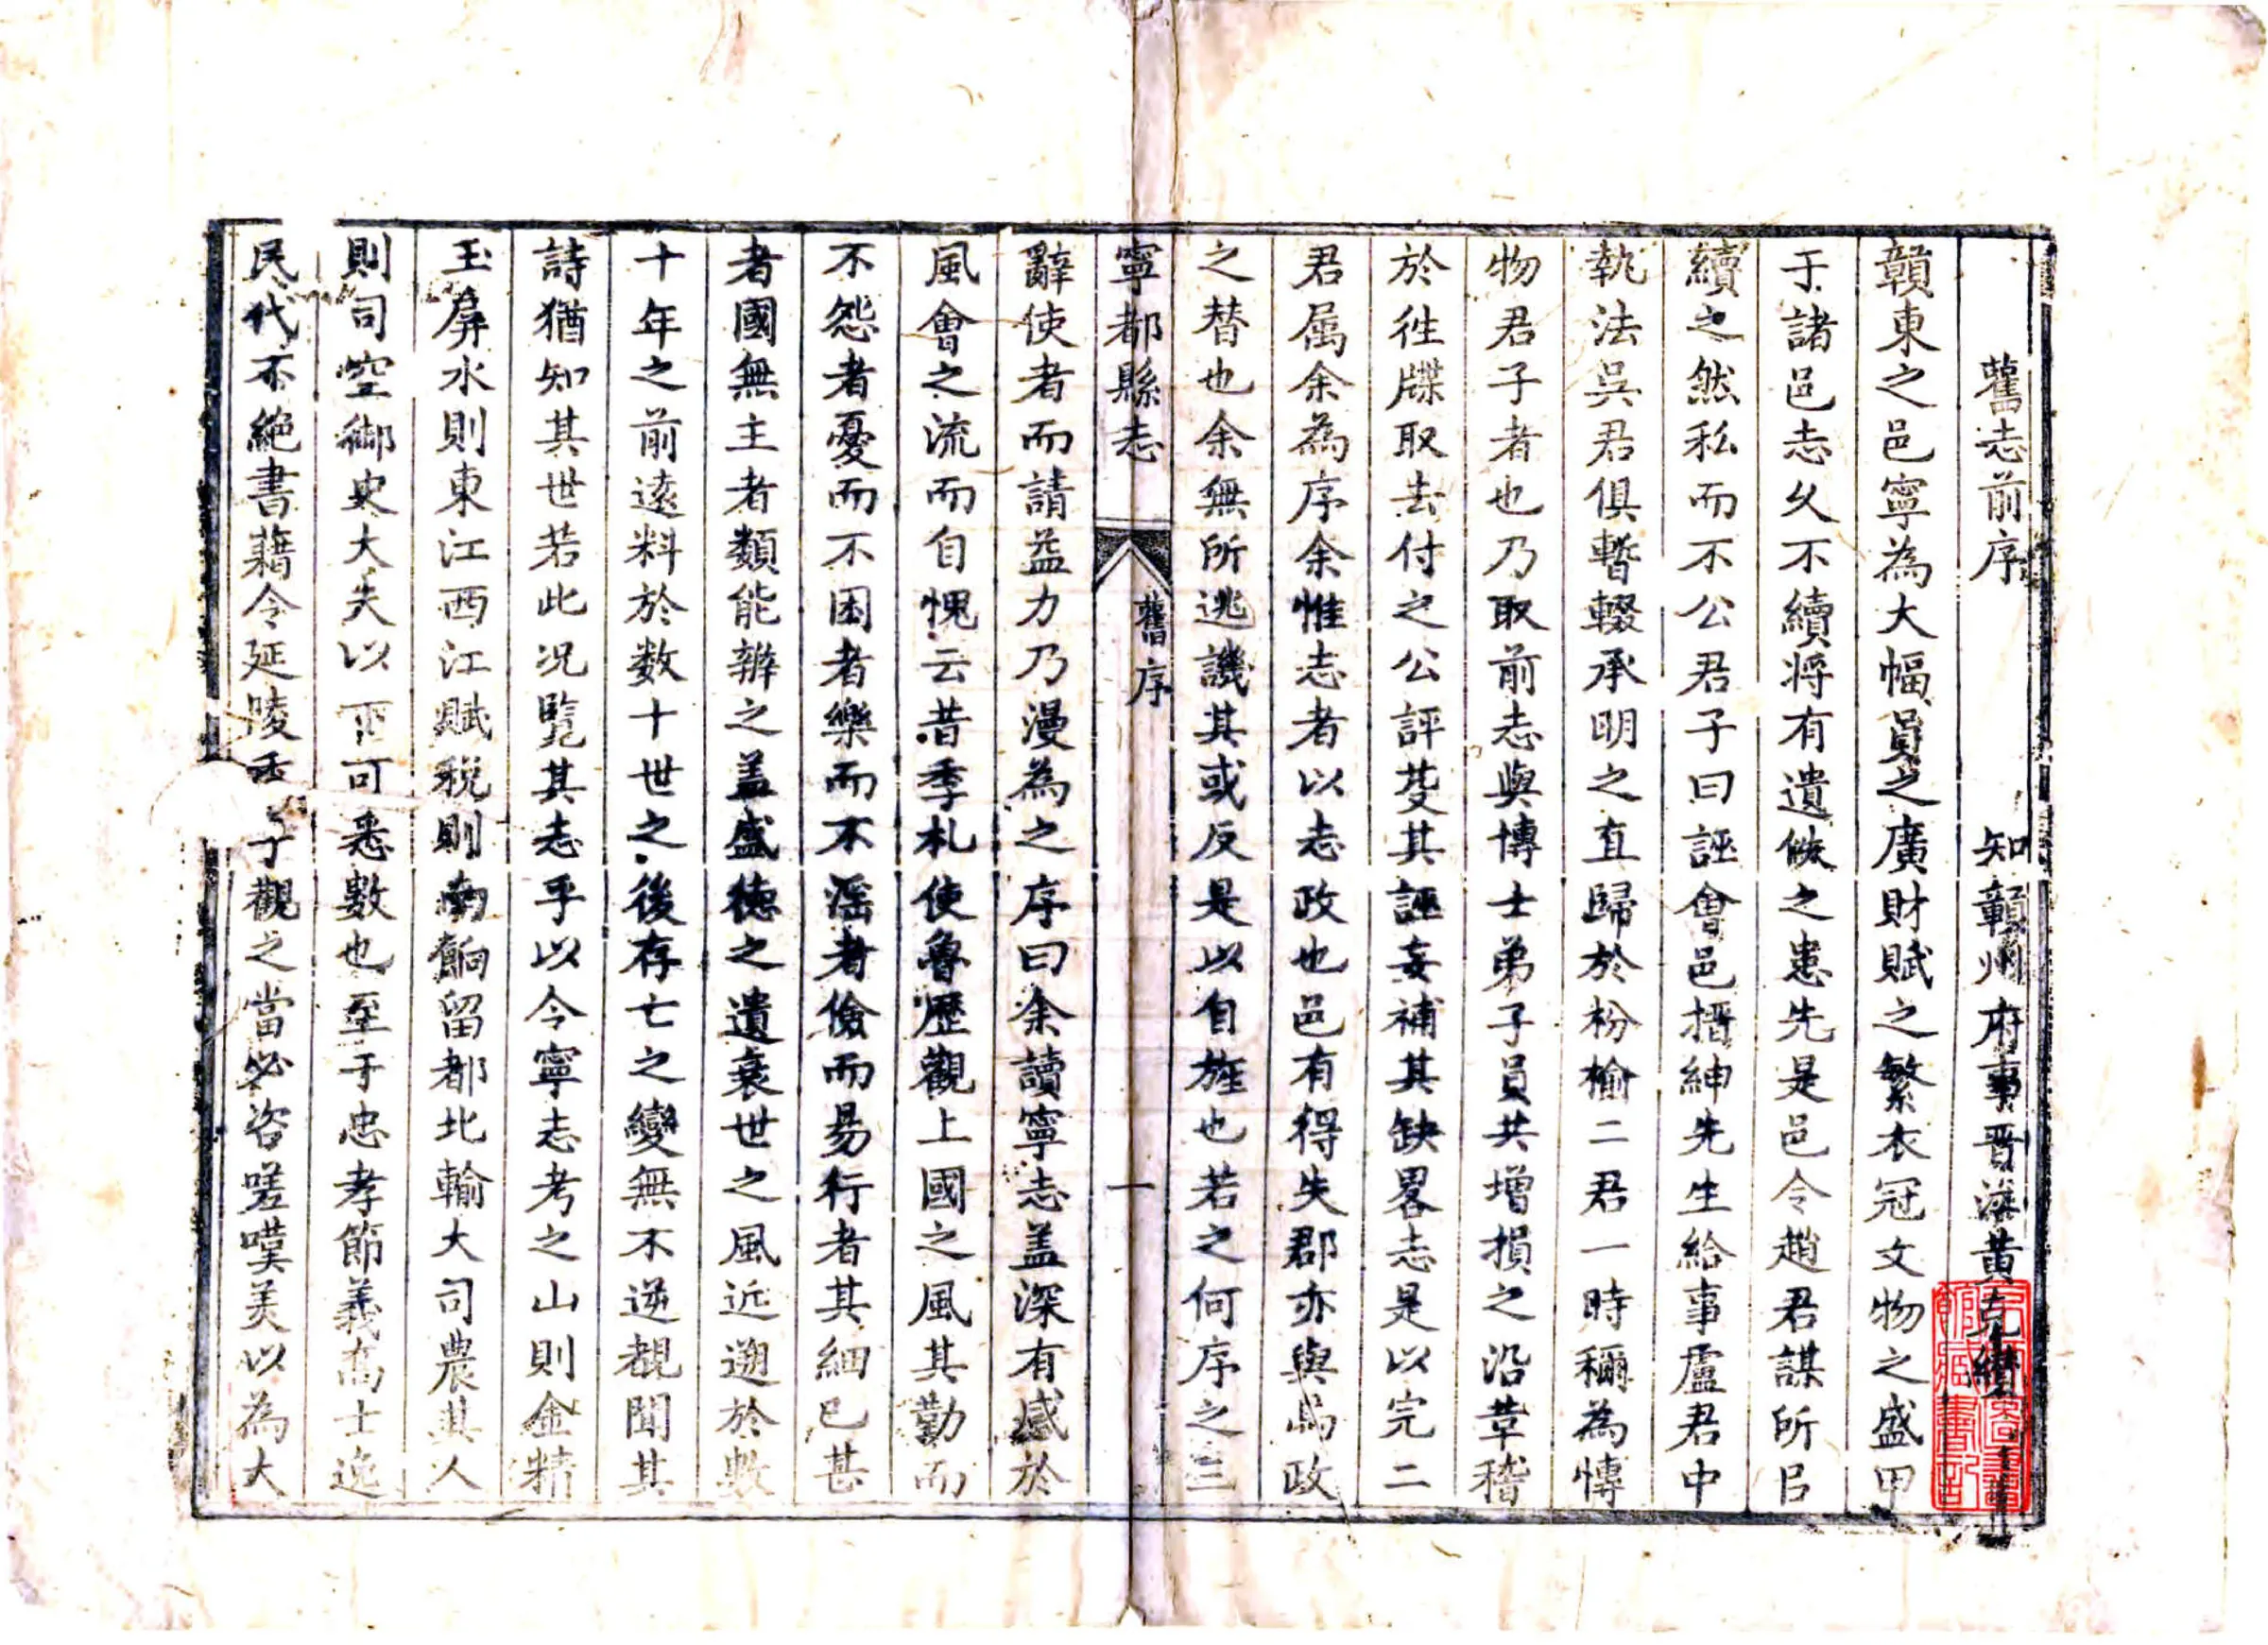 舊志前序
知贛州府事晉江黃克纘
贛東之邑寧為大幅員之廣財賦之繁衣冠文物之盛甲
于諸邑志久不續將有遺佚之患先是邑令趙君謀所㠯
續之然私而不公君子曰誣會邑搢紳先生給事盧君中
執法吳君俱暫輟承明之直歸於枌榆二君一時稱為博
物君子者也乃取前志與博士弟子員共增損之沿革稽
於徃牒取去付之公評芟其誣妄補其缺畧志是以完二
君属余為序余惟志者以志政也邑有得失郡亦與為政
之替也余無所逃譏其或反是以自旌也若之何序之三
寧都縣志
舊序
一
辭使者而請益力乃漫為之序曰余讀寧志盖深有感於
風會之流而自愧云昔季札使魯歷觀上國之風其勤而
不怨者憂而不困者樂而不滛者儉而易行者其細已甚
者國無主者類能辦之盖盛德之遺衰世之風近遡於數
十年之前遠料於数十世之後存亡之變無不逆覩聞其
詩猶知其世若此况覧其志乎以今寧志考之山則金精
玉屏水則東江西江賦稅則南餉留都北輸大司農其人
則司空御史大夫以下可悉數也至于忠孝節義高士逸
民代不絕書藉令延陵 子觀之當必咨嗟嘆美以為大